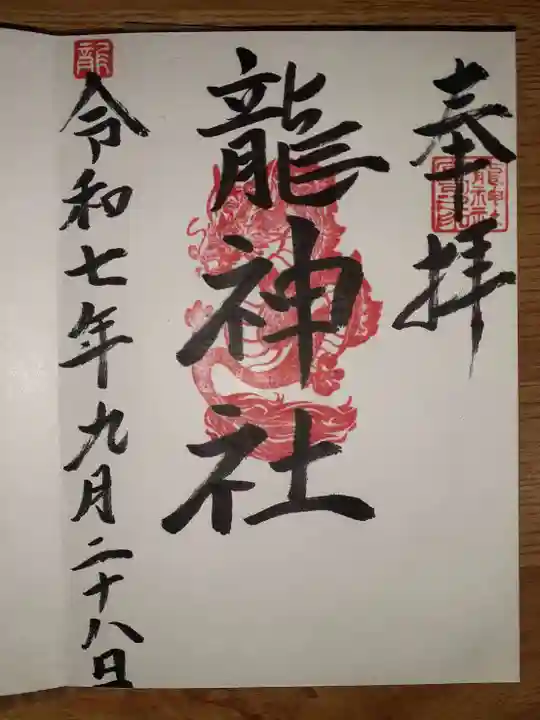 奉拝
龍神社
龍
令和七年九月二十八日